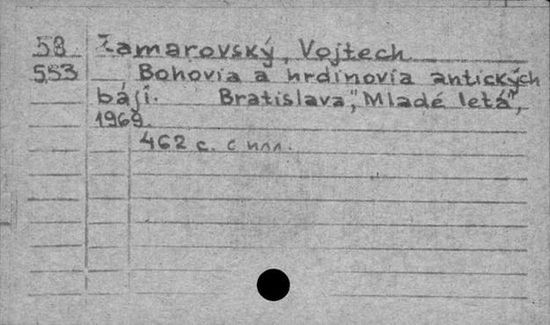 58 Zamarovský, Vojtech
553 Bohovia a hrdinovia antických
báji. Bratislava, "Mladé letá",
1969.
462 c. с илл.